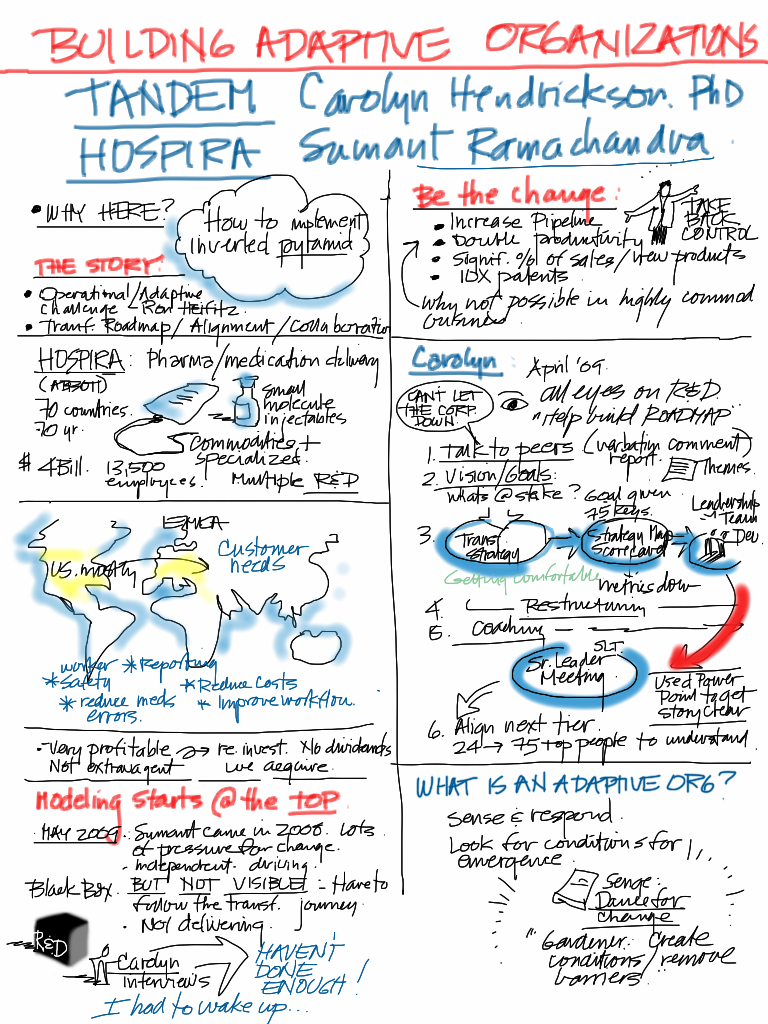 BUILDING ADAPTIVE ORGANIZATIONS
TANDEM Carolyn Hendrickson. PhD
HOSPIRA Sumant Ramachandra
• WHY HERE?
How to implement
inverted pyramid
THE STORY:
• Operational/Adaptive
challenge - Ron Heifitz
• Transf. Roadmap/Alignment/Collaboration
HOSPIRA: Pharma/medication delivery
(ABBOTT)
70 countries.
70 yr.
small
molecule
injectables
Commodities +
specialized.
$ 4Bill. 13,500
employees.
Multiple R&D
EMEA
U.S. mostly
Customer
needs
* worker
safety
* Reporting
* Reduce costs
* reduce meds
errors.
* Improve workflow.
• Very profitable → re invest. No dividends
Not extravagent we acquire.
Modeling starts @ the TOP
MAY 2009. Sumant came in 2008. Lots
of pressure for change.
- independent. driving.
Black Box. BUT NOT VISIBLE! - Have to
follow the transf. journey
• Not delivering.
R&D
Carolyn
interviews
HAVEN'T
DONE
ENOUGH!
I had to wake up...
Be the change:
• Increase Pipeline
• Double productivity
• Signif. % of sales/new products
• 10X patents
TAKE
BACK
CONTROL
Why not possible in highly commod
business
Carolyn: April '09.
CAN'T LET
THE CORP.
DOWN.
all eyes on R&D.
"Help build ROADMAP"
1. Talk to peers (verbatim comment)
report.
Themes
2. Vision/Goals:
what's @ stake? Goal given
75 keys.
Leadership
Team
Dev.
3. Transf.
Strategy
Strategy Map
Scorecard
Getting comfortable
metrics down
4. Restructuring
5. Coaching
SLT.
Sr. Leader
Meeting
Used Power
Point to get
story clear
6. Align next tier.
24 → 75 top people to understand.
WHAT IS AN ADAPTIVE ORG?
Sense & respond.
Look for conditions for
emergence
Senge:
Dance for
change
"Gardener. Create
conditions/remove
barriers"